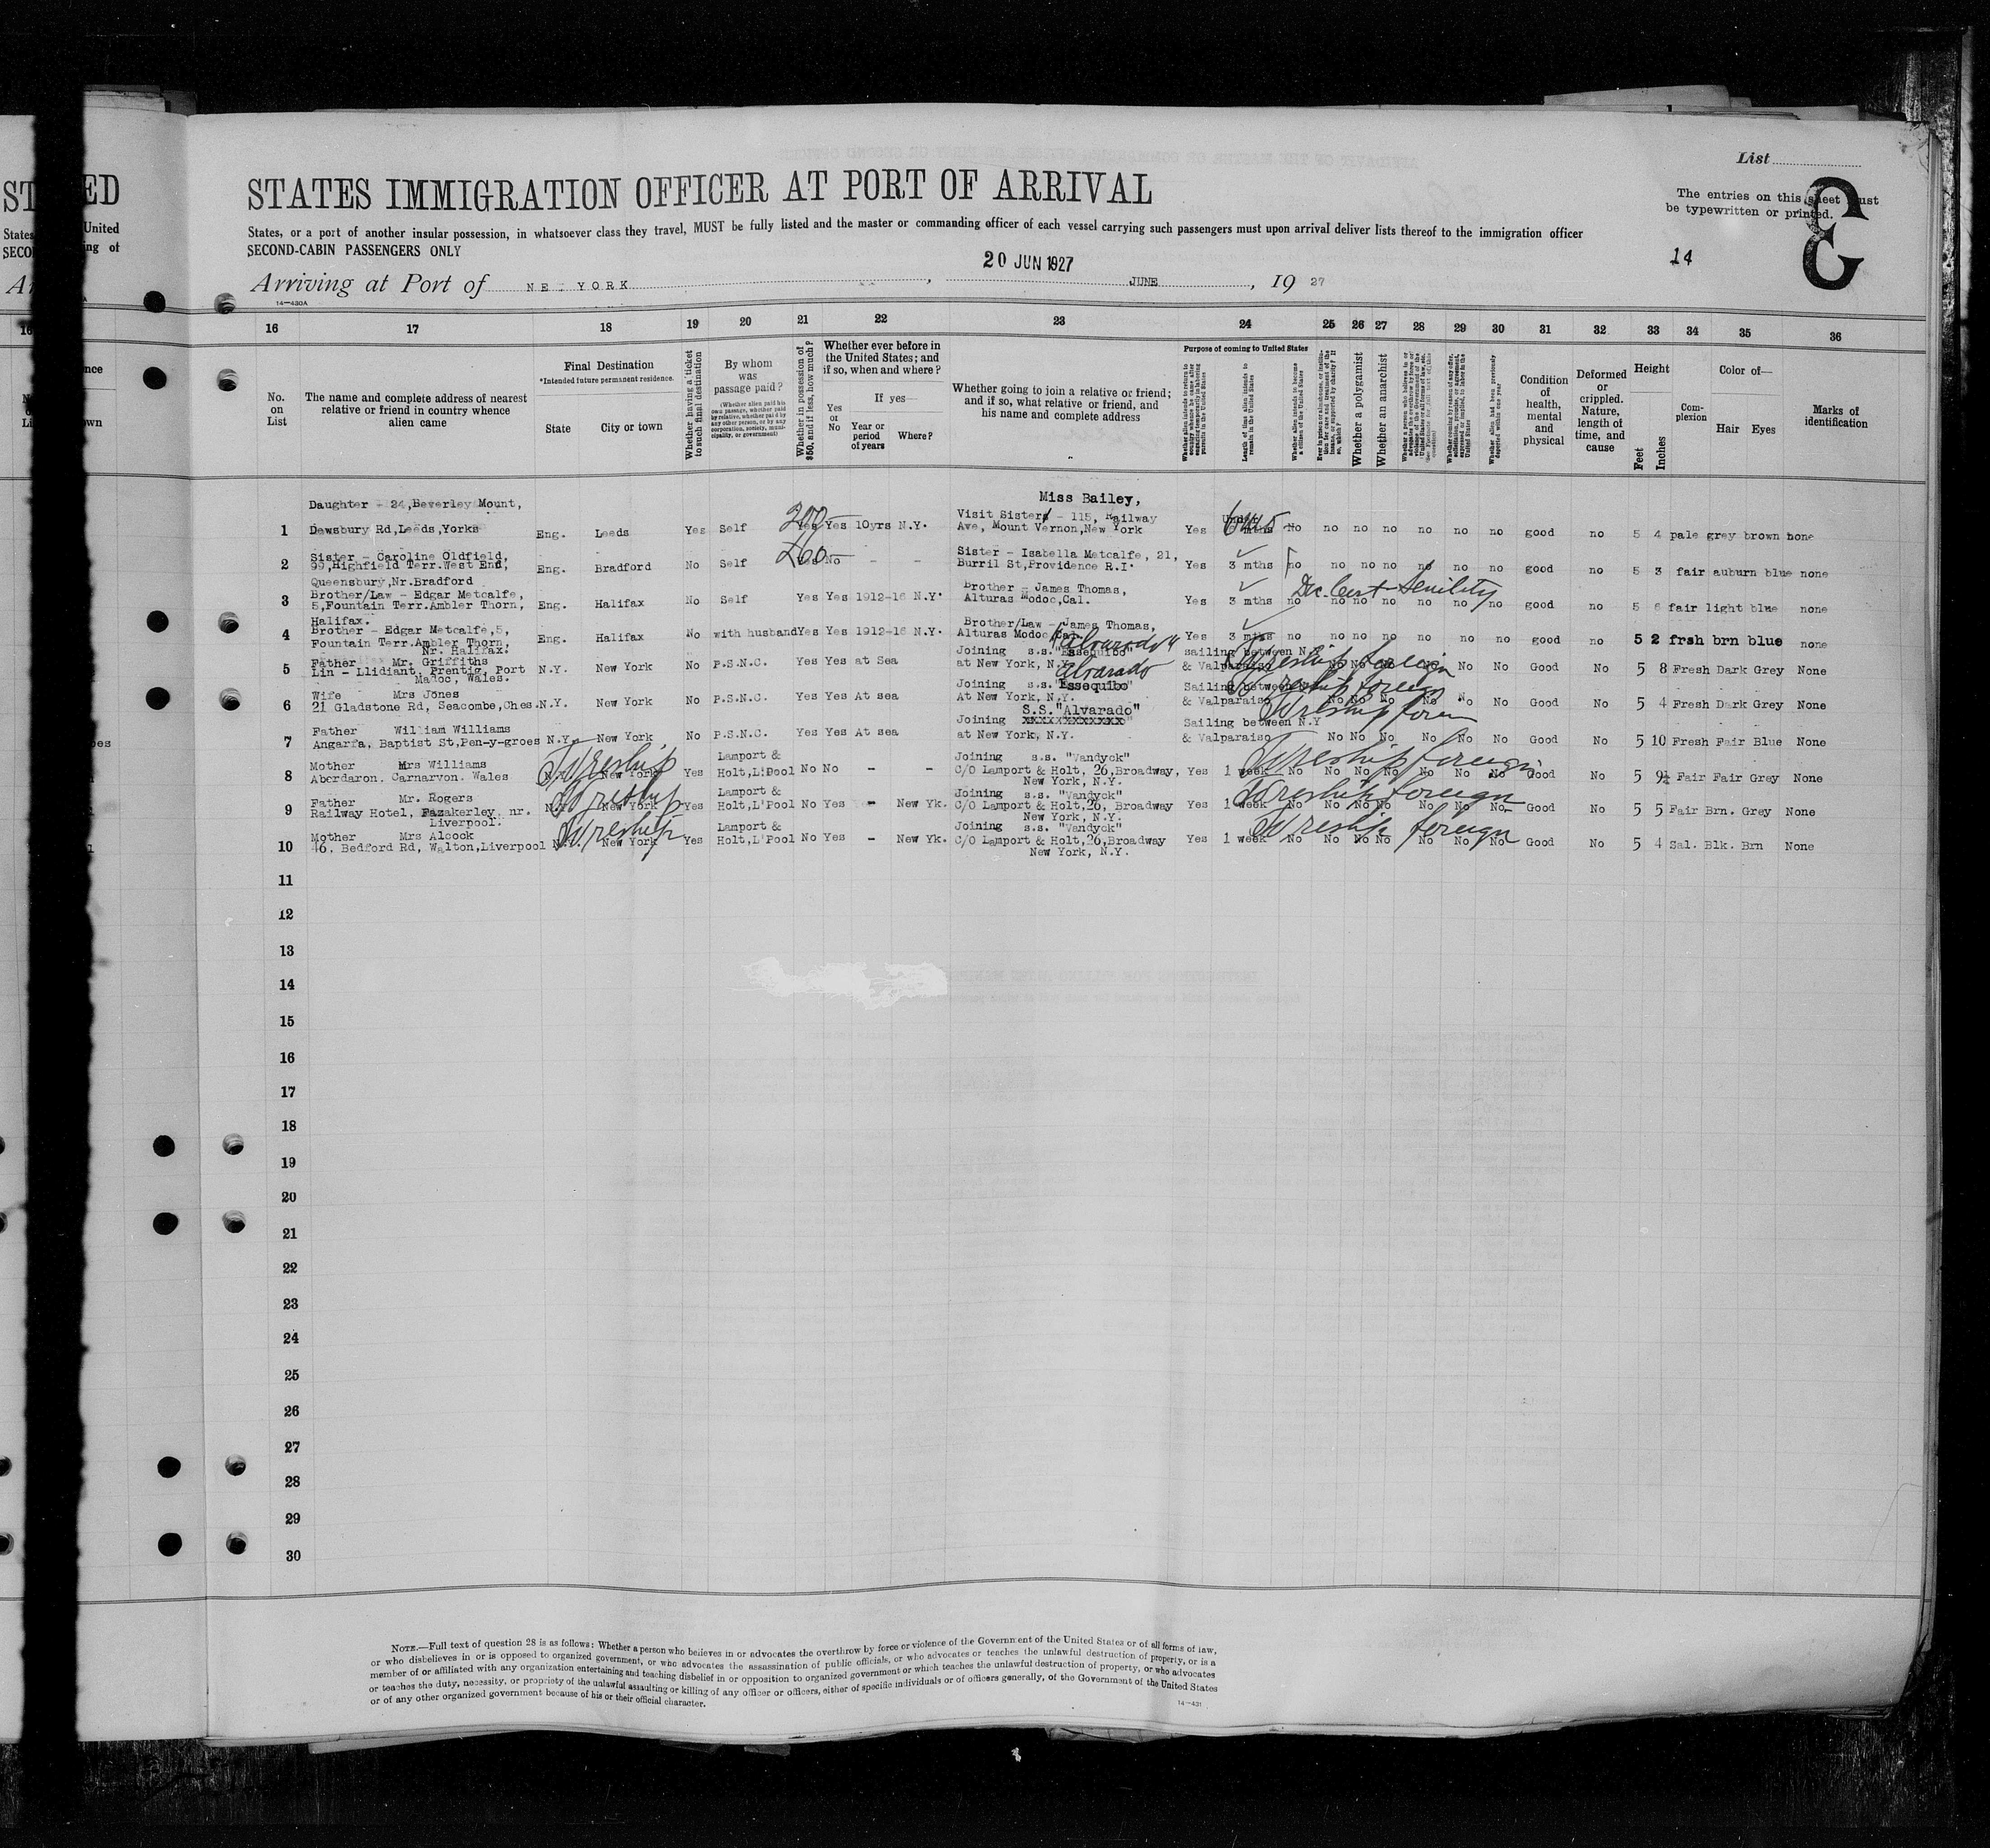 ST
ED
States
United
SECO
ing of
List
STATES IMMIGRATION OFFICER AT PORT OF ARRIVAL
The entries on this sheet must
be typewritten or printed.
3
14
States, or a port of another insular possession, in whatsoever class they travel, MUST be fully listed and the master or commanding officer of each vessel carrying such passengers must upon arrival deliver lists thereof to the immigration officer
SECOND-CABIN PASSENGERS ONLY
20 JUN 1927
Arriving at Port of NEW YORK, JUNE, 19 27
14-430A
16 17 18 19 20 21 22 23 24 25 26 27 28 29 30 31 32 33 34 35 36
No. on List
The name and complete address of nearest relative or friend in country whence alien came
Final Destination
*Intended future permanent residence.
State
City or town
Whether having a ticket to such final destination
By whom was passage paid?
(Whether alien paid his own passage, whether paid by relative, whether paid by any other person, or by any corporation, society, municipality, or government)
Whether in possession of $50, and if less, how much?
Whether ever before in the United States; and if so, when and where?
Yes or No
If yes—
Year or period of years
Where?
Whether going to join a relative or friend; and if so, what relative or friend, and his name and complete address
Purpose of coming to United States
Length of time alien intends to remain in the United States
Whether alien intends to become a citizen of the United States
Whether a polygamist
Whether an anarchist
Condition of health, mental and physical
Deformed or crippled. Nature, length of time, and cause
Height
Feet
Inches
Complexion
Color of—
Hair Eyes
Marks of identification
Daughter - 24,Beverley Mount, Miss Bailey,
200—
Visit Sister - 115, Railway
1 Dewsbury Rd,Leeds,Yorks Eng. Leeds Yes Self Yes Yes 10yrs N.Y. Ave, Mount Vernon,New York Yes 6 mths no no no no no no no good no 5 4 pale grey brown none
Sister - Caroline Oldfield, £60— Sister - Isabella Metcalfe, 21,
2 99,Highfield Terr.West End, Eng. Bradford No Self Yes No - - Burril St,Providence R.I. Yes 3 mths no no no no no no no good no 5 3 fair auburn blue none
Queensbury,Nr.Bradford
Brother/Law - Edgar Metcalfe, Brother - James Thomas, Dec. Cert Senility
3 5,Fountain Terr.Ambler Thorn, Eng. Halifax No Self Yes Yes 1912-16 N.Y. Alturas Modoc,Cal. Yes 3 mths no no no no no no no good no 5 6 fair light blue none
Halifax.
Brother - Edgar Metcalfe,5, Brother/Law - James Thomas,
4 Fountain Terr.Ambler Thorn, Eng. Halifax No with husband Yes Yes 1912-16 N.Y. Alturas Modoc Cal. Yes 3 mths no no no no no no no good no 5 2 frsh brn blue none
Nr. Halifax. "Alvarado"
Father Mr. Griffiths Joining s.s."Essequibo" sailing between N.Y
5 Lin - Llidiant, Prentig, Port N.Y. New York No P.S.N.C. Yes Yes at Sea at New York, N.Y. & Valparaiso No No No No No No Good No 5 8 Fresh Dark Grey None
Madoc, Wales. Alvarado Tureship foreign
Wife Mrs Jones Joining s.s."Essequibo" Sailing between
6 21 Gladstone Rd, Seacombe,Ches. N.Y. New York No P.S.N.C. Yes Yes At sea At New York, N.Y. & Valparaiso No No No No No No Good No 5 4 Fresh Dark Grey None
S.S."Alvarado"
Father William Williams Joining xxxxxxxxxxxx" Sailing between N.Y
7 Angarfa, Baptist St,Pen-y-groes N.Y. New York No P.S.N.C. Yes Yes At sea at New York, N.Y. & Valparaiso No No No No No No Good No 5 10 Fresh Fair Blue None
Mother Mrs Williams Lamport & Joining s.s. "Vandyck"
8 Aberdaron. Carnarvon. Wales N.Y. New York Yes Holt,L'Pool No No - - C/O Lamport & Holt, 26,Broadway, Yes 1 week No No No No No No No Good No 5 9½ Fair Fair Grey None
New York, N.Y.
Father Mr. Rogers Lamport & Joining s.s. "Vandyck"
9 Railway Hotel, Fazakerley, nr. N.Y. New York Yes Holt,L'Pool No Yes - New Yk. C/O Lamport & Holt,26, Broadway Yes 1 week No No No No No No No Good No 5 5 Fair Brn. Grey None
Liverpool. New York, N.Y.
Mother Mrs Alcock Lamport & Joining s.s. "Vandyck"
10 46, Bedford Rd, Walton,Liverpool N.Y. New York Yes Holt,L'Pool No Yes - New Yk. C/O Lamport & Holt,26,Broadway Yes 1 week No No No No No No No Good No 5 4 Sal. Blk. Brn None
New York, N.Y.
11
12
13
14
15
16
17
18
19
20
21
22
23
24
25
26
27
28
29
30
NOTE.—Full text of question 28 is as follows: Whether a person who believes in or advocates the overthrow by force or violence of the Government of the United States or of all forms of law,
or who disbelieves in or is opposed to organized government, or who advocates the assassination of public officials, or who advocates or teaches the unlawful destruction of property, or is a
member of or affiliated with any organization entertaining and teaching disbelief in or opposition to organized government or which teaches the unlawful destruction of property, or who advocates
or teaches the duty, necessity, or propriety of the unlawful assaulting or killing of any officer or officers, either of specific individuals or of officers generally, of the Government of the United States
or of any other organized government because of his or their official character.
14-431